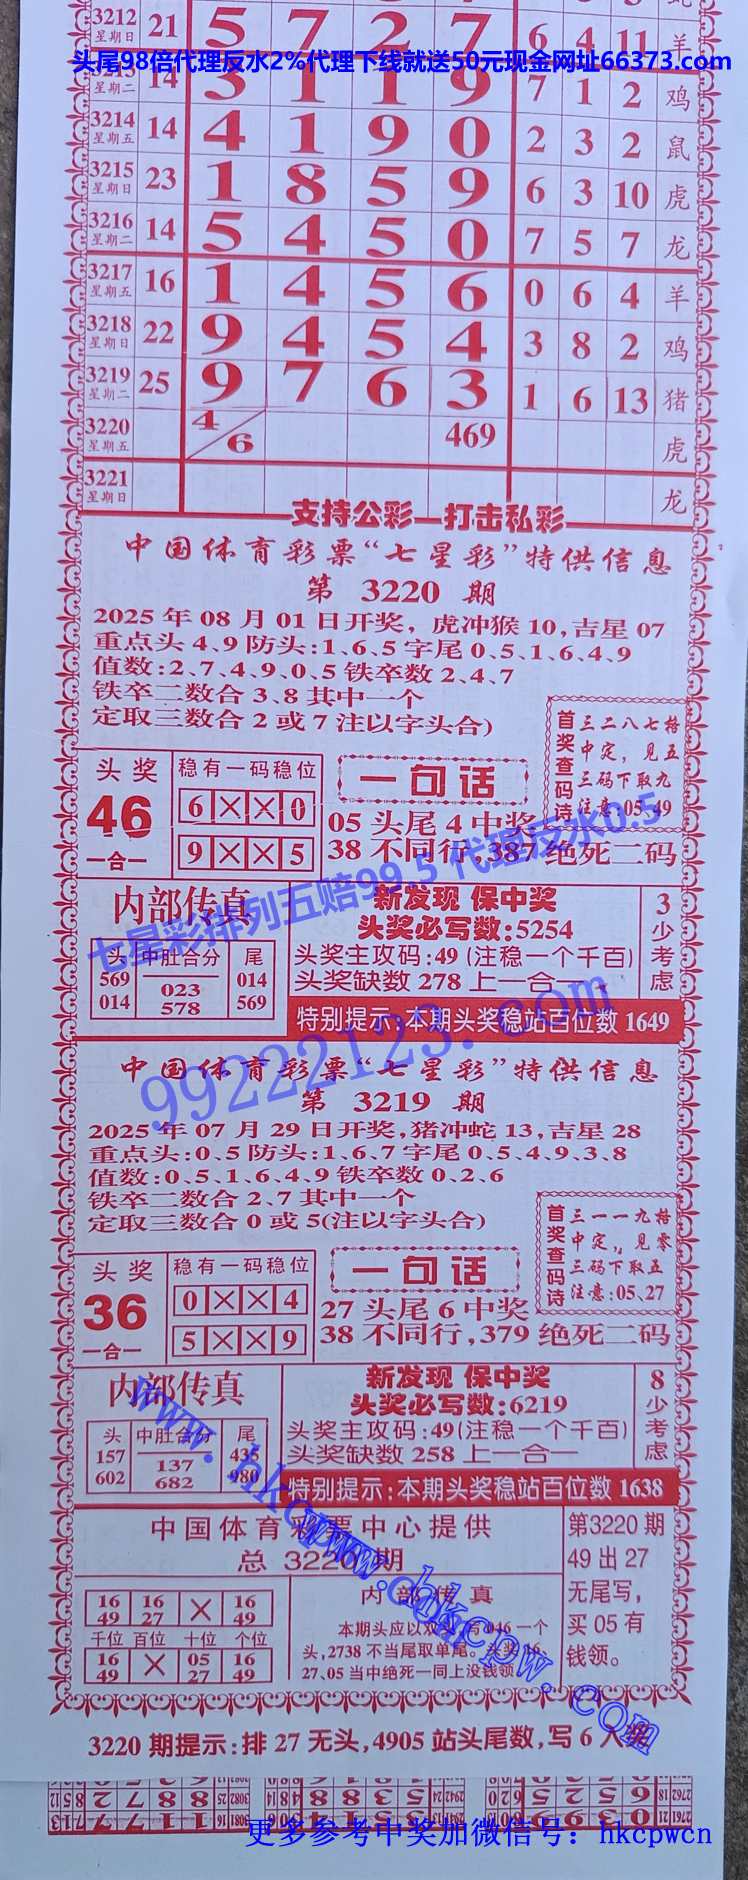 3212 星期日 21 5 7 2 7 6 4 11 羊
头尾98倍代理反水2%代理下线就送50元现金网址66373.com
3213 星期二 14 3 1 1 9 7 1 2 鸡
3214 星期五 14 4 1 9 0 2 3 2 鼠
3215 星期日 23 1 8 5 9 6 3 10 虎
3216 星期二 14 5 4 5 0 7 5 7 龙
3217 星期五 16 1 4 5 6 0 6 4 羊
3218 星期日 22 9 4 5 4 3 8 2 鸡
3219 星期二 25 9 7 6 3 1 6 13 猪
3220 星期五 4/6 469 虎
3221 星期日 龙
支持公彩—打击私彩
中国体育彩票“七星彩”特供信息
第 3220 期
2025年08月01日开奖, 虎冲猴10,吉星07
重点头4、9防头:1、6、5字尾0、5、1、6、4、9
值数:2、7、4、9、0、5铁卒数2、4、7
铁卒二数合3、8其中一个
定取三数合2或7注以字头合)
首奖查码诗
三二八七格
中定, 见五
三码下取九
注意:05、49
头奖
46
一合一
稳有一码稳位
6 × × 0
9 × × 5
一句话
05 头尾 4 中奖
38 不同行,387 绝死二码
内部传真
头 中肚合分 尾
569 023 014
014 578 569
新发现 保中奖
头奖必写数:5254
头奖主攻码:49(注稳一个千百)
头奖缺数 278 上一合一
3少考虑
特别提示:本期头奖稳站百位数 1649
七星彩排列五赔99.5 代理反水0.5
99222123.com
中国体育彩票“七星彩”特供信息
第 3219 期
2025年07月29日开奖,猪冲蛇13,吉星28
重点头:0、5防头:1、6、7字尾0、5、4、9、3、8
值数:0、5、1、6、4、9铁卒数0、2、6
铁卒二数合2、7其中一个
定取三数合0或5(注以字头合)
首奖查码诗
三一一九格
中定,, 见零
三码下取五
注意:05、27
头奖
36
一合一
稳有一码稳位
0 × × 4
5 × × 9
一句话
27 头尾 6 中奖
38 不同行,379 绝死二码
内部传真
头 中肚合分 尾
157 137 435
602 682 980
新发现 保中奖
头奖必写数:6219
头奖主攻码:49(注稳一个千百)
头奖缺数 258 上一合一
8少考虑
特别提示:本期头奖稳站百位数 1638
www.hkcpww.com
www.hkcpw.com
中国体育彩票中心提供
总 3220 期
16 49 16 27 × 16 49
千位 百位 十位 个位
16 49 × 05 27 16 49
内部传真
本期头应以双头,写046一个
头,2738不当尾取单尾。头奖16、
27、05当中绝死一同上没钱领。
第3220期
49出27
无尾写,
买05有
钱领。
3220期提示:排27无头,4905站头尾数,写6入奖
更多参考中奖加微信号：hkcpwcn